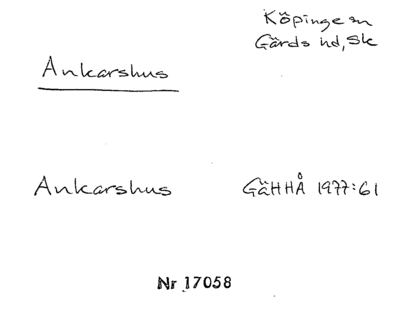 Köpinge sn
Gärds hd, Sk
Ankarshus
Ankarshus GäHHÅ 1977:61
Nr 17058